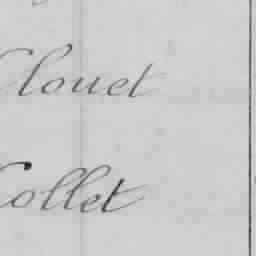 Clouet
Collet